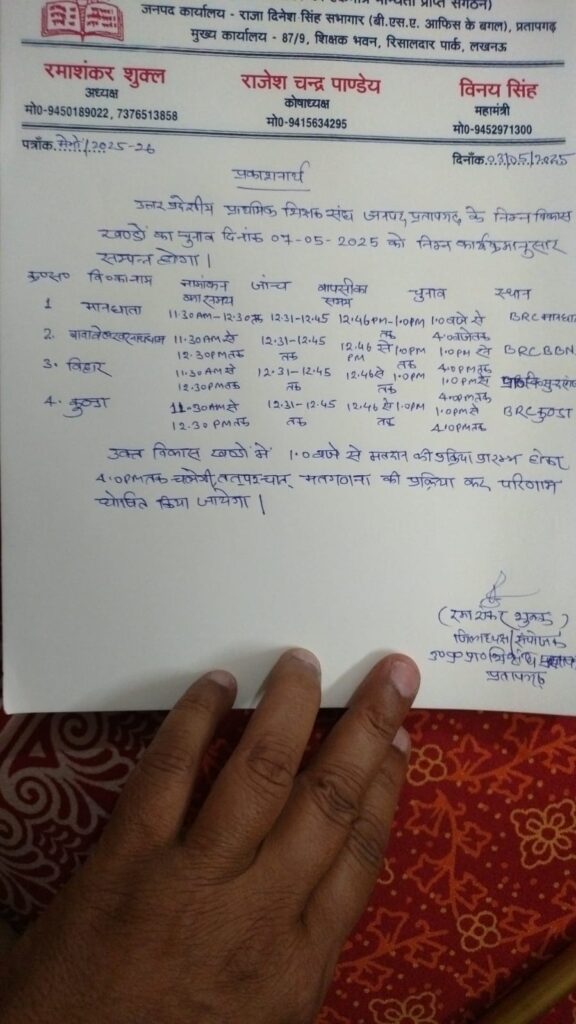 मान्यता प्राप्त संगठन)
जनपद कार्यालय - राजा दिनेश सिंह सभागार (बी.एस.ए. आफिस के बगल), प्रतापगढ़
मुख्य कार्यालय - 87/9, शिक्षक भवन, रिसालदार पार्क, लखनऊ
रमाशंकर शुक्ल राजेश चन्द्र पाण्डेय विनय सिंह
अध्यक्ष कोषाध्यक्ष महामंत्री
मो0-9450189022, 7376513858 मो0-9415634295 मो0-9452971300
पत्रॉंक.मेमो/2025-26 दिनॉंक.03/05/2025
प्रकाशनार्थ
उत्तर प्रदेशीय प्राथमिक शिक्षक संघ जनपद प्रतापगढ़ के निम्न विकास
खण्डों का चुनाव दिनांक 07-05-2025 को निम्न कार्यक्रमानुसार
सम्पन्न होगा।
क्र०स० वि०का नाम नामांकन का समय जांच वापसी का समय चुनाव स्थान
1 मानधाता 11.30AM-12.30तक 12.31-12.45 12.46PM-1.0PM तक 1.0बजे से 4.0बजेतक BRC मानधाता
2. 11.30AM से 12.30PMतक 12.31-12.45 तक 12.46 से 1.0PM तक 1.0PM से 4.0PMतक BRC BBN
3. विहार 11.30AM से 12.30PMतक 12.31-12.45 तक 12.46से 1.0PM तक 1.0PM से 4.0PMतक
4. कुण्डा 11.30AM से 12.30PMतक 12.31-12.45 तक 12.46 से 1.0PM तक 1.0PM से 4.0PMतक BRC कुण्डा
उक्त विकास खण्डों में 1.0बजे से मतदान की प्रक्रिया प्रारम्भ होकर
4.0PMतक चलेगी, तत्पश्चात् मतगणना की प्रक्रिया कर परिणाम
घोषित किया जायेगा।
(रमाशंकर शुक्ल)
जिलाध्यक्ष/संयोजक
प्रतापगढ़